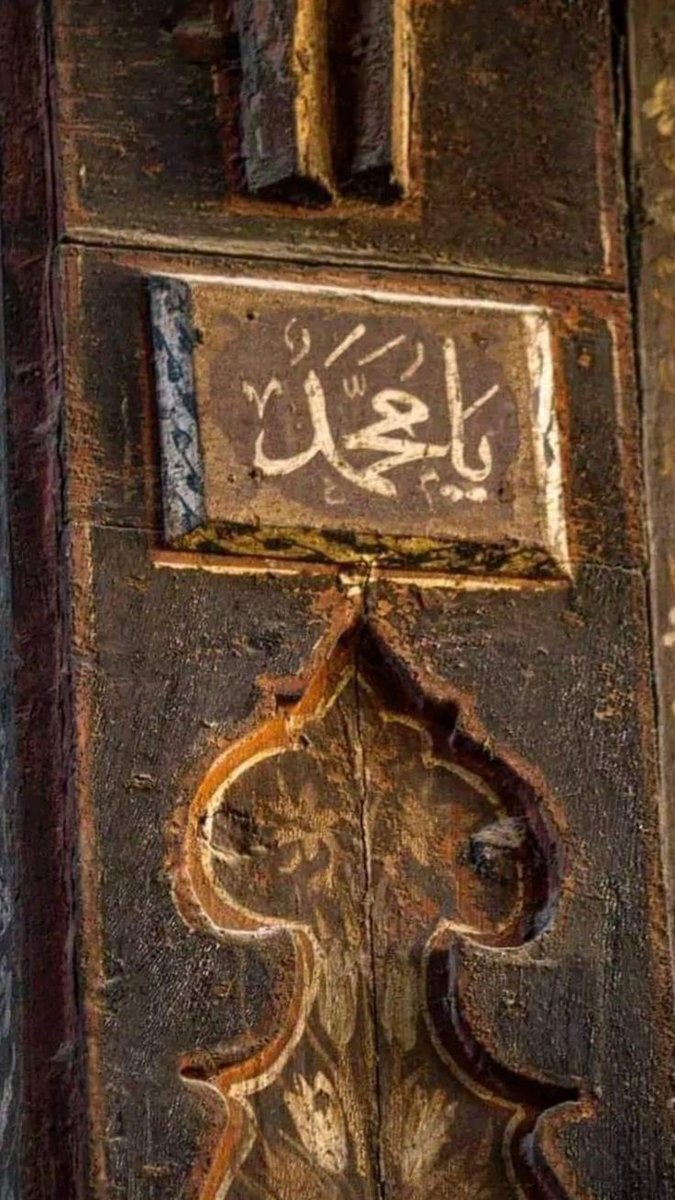 يا محمد